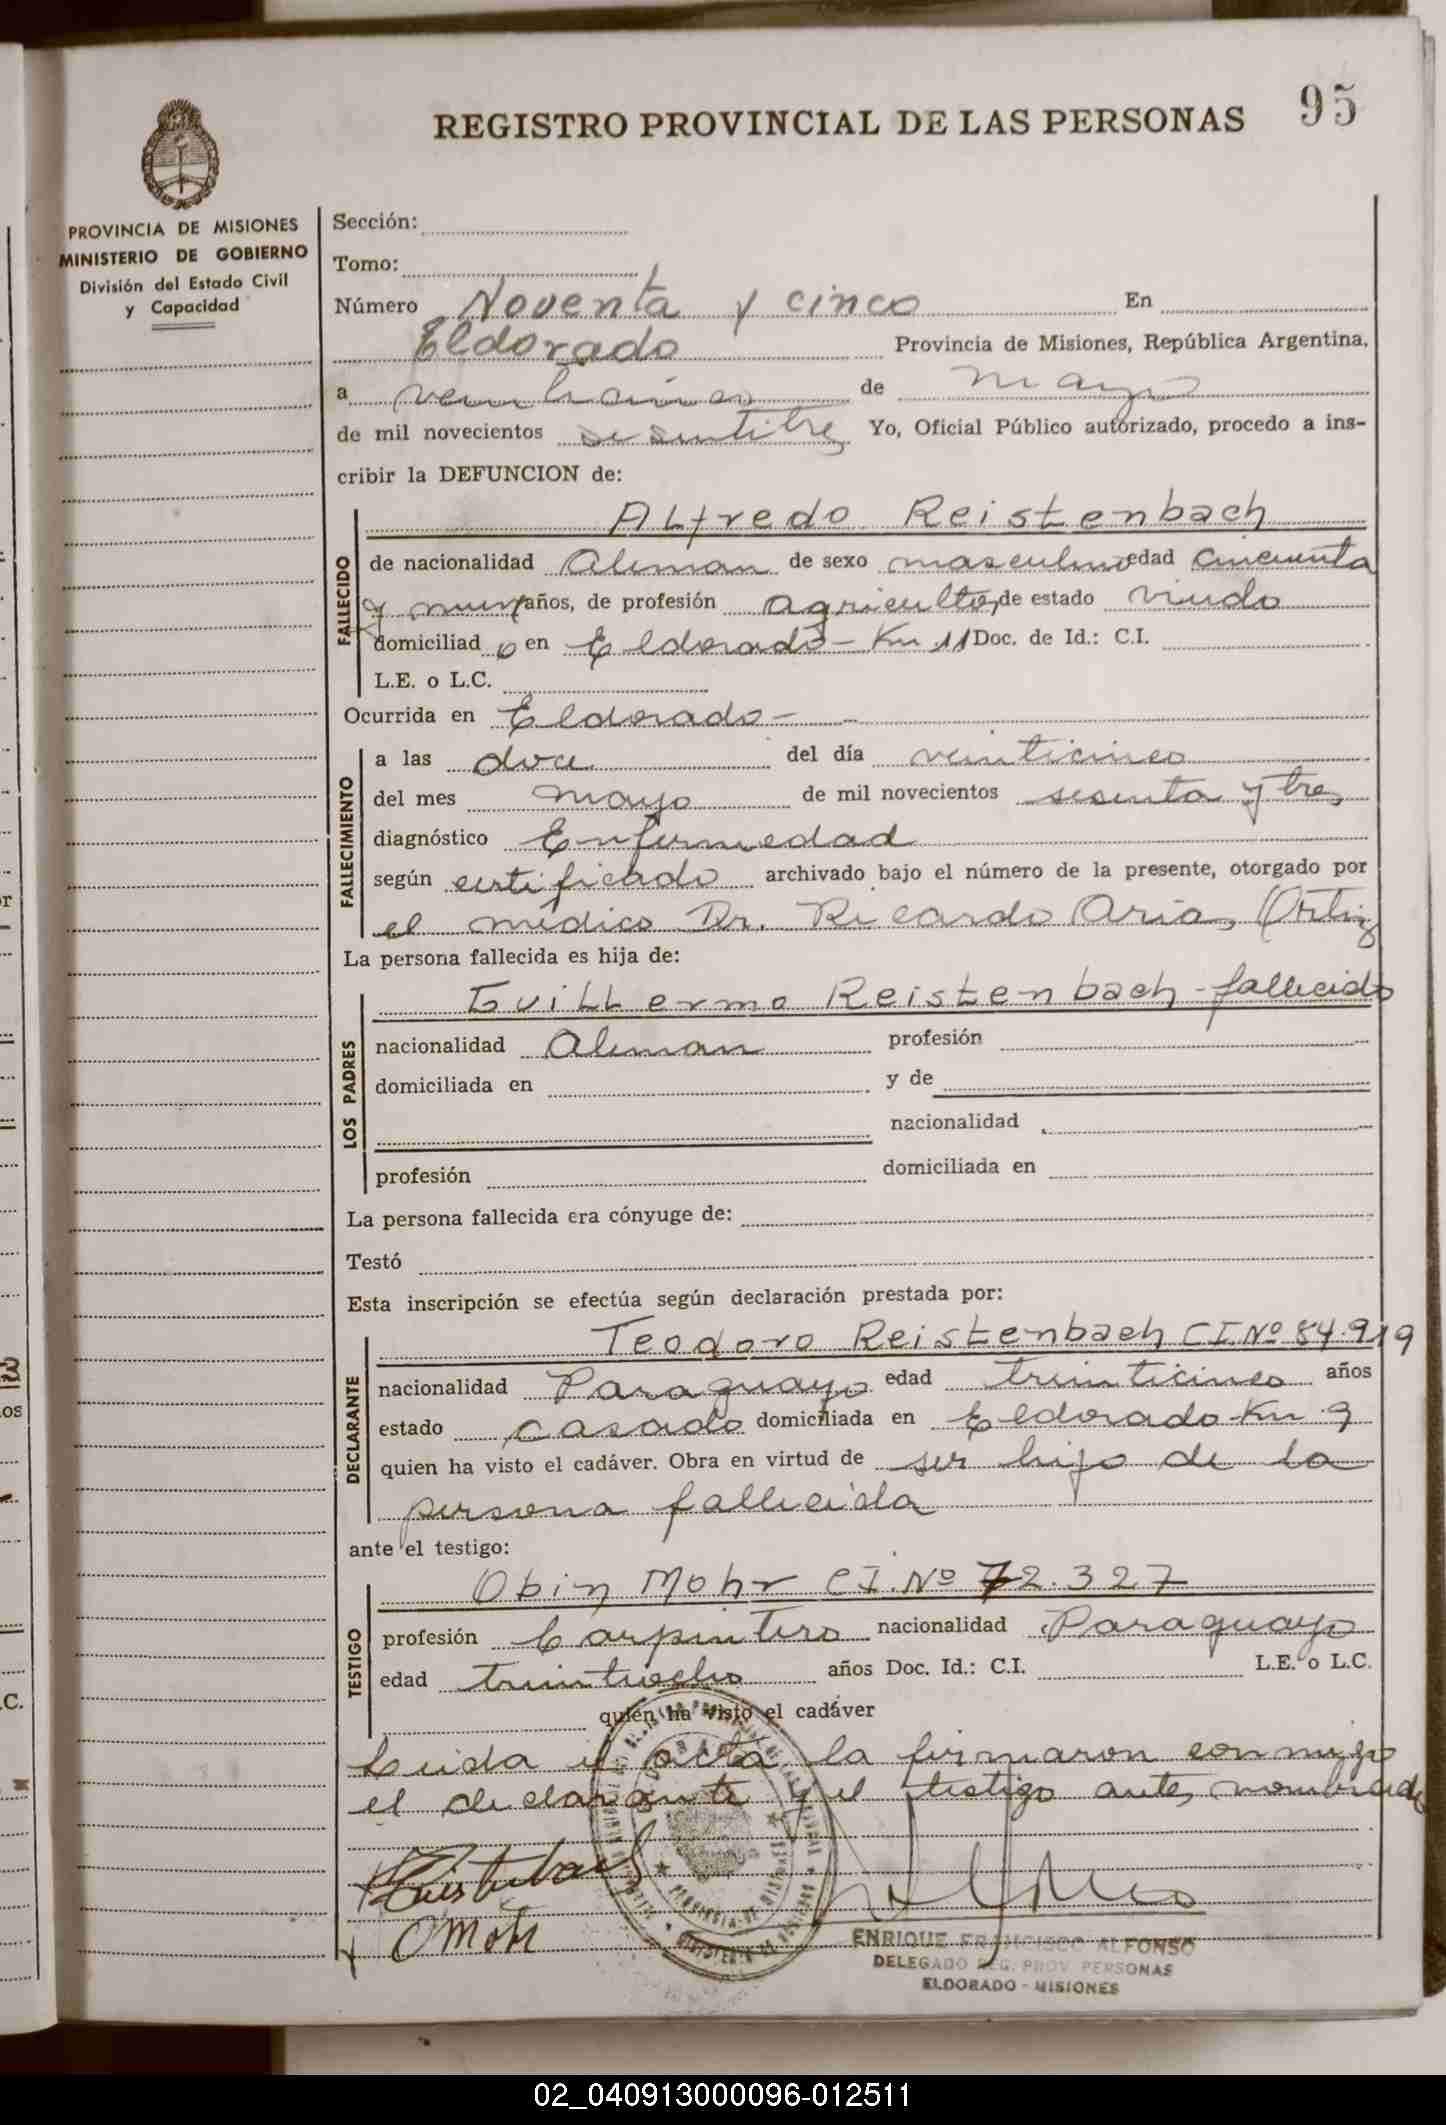 REGISTRO PROVINCIAL DE LAS PERSONAS 95
PROVINCIA DE MISIONES
MINISTERIO DE GOBIERNO
División del Estado Civil
y Capacidad
Sección:
Tomo:
Número Noventa y cinco En
Eldorado Provincia de Misiones, República Argentina,
a veinticinco de mayo
de mil novecientos sesentitres Yo, Oficial Público autorizado, procedo a ins-
cribir la DEFUNCION de:
FALLECIDO
Alfredo Reistenbach
de nacionalidad Aleman de sexo masculino edad cincuenta
y nueve años, de profesión agricultor, de estado viudo
domiciliad o en Eldorado - Km 11 Doc. de Id.: C.I.
L.E. o L.C.
Ocurrida en Eldorado -
FALLECIMIENTO
a las doce del día veinticinco
del mes mayo de mil novecientos sesenta y tres
diagnóstico Enfermedad
según certificado archivado bajo el número de la presente, otorgado por
el médico Dr. Ricardo Arias Ortiz
La persona fallecida es hija de:
LOS PADRES
Guillermo Reistenbach - fallecido
nacionalidad Aleman profesión
domiciliada en y de
nacionalidad
profesión domiciliada en
La persona fallecida era cónyuge de:
Testó
Esta inscripción se efectúa según declaración prestada por:
DECLARANTE
Teodoro Reistenbach C.I. Nº 84.919
nacionalidad Paraguayo edad treinticinco años
estado casado domiciliada en Eldorado Km 9
quien ha visto el cadáver. Obra en virtud de ser hijo de la
persona fallecida
ante el testigo:
TESTIGO
Obin Mohr C.I. Nº 72.327
profesión Carpintero nacionalidad Paraguayo
edad treintiocho años Doc. Id.: C.I. L.E. o L.C.
quien ha visto el cadáver
Leida el acta, la firmaron conmigo
el declarante y el testigo antes nombrado
O Mohr
ENRIQUE FRANCISCO ALFONSO
DELEGADO REG. PROV. PERSONAS
ELDORADO - MISIONES
02_040913000096-012511